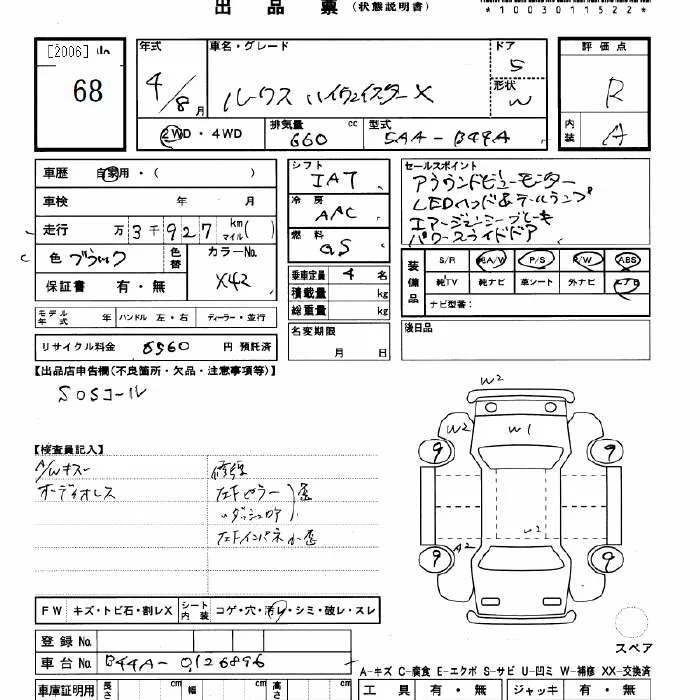 出品票 (状態説明書)
*1003011522*
[2006]
68
年式 4/8月
車名・グレード ルークス ハイウェイスターX
ドア 5
形状 W
2WD・4WD
排気量 660 cc
型式 5AA-B44A
評価点 R
内装 A
車歴 自家用・( )
車検 年 月
走行 万3千927 km マイル( )
色 ブラック 色替 カラーNo. X42
保証書 有・無
シフト IAT
冷房 AAC
燃料 GS
セールスポイント
アラウンドビューモニター
LEDヘッド&テールランプ
エマージェンシーブレーキ
パワースライドドア
乗車定員 4名
積載量 kg
総重量 kg
装備品 S/R 純A/W P/S P/W ABS
純TV 純ナビ 革シート 外ナビ エアB
ナビ型番:
モデル年式 年 ハンドル 左・右 ディーラー・並行
名変期限 月 日
後日品
リサイクル料金 8560 円 預託済
【出品店申告欄(不良箇所・欠品・注意事項等)】
SOSコール
【検査員記入】
A/Wキズ
オーディオレス
修復
左Fピラー
〃ダッシュロア 歪
左Fインパネ小歪
W2
W2 W1
9 9
W2
A2
9 9
スペア
FW キズ・トビ石・割レX シート内装 コゲ・穴・汚レ・シミ・破レ・スレ
登録No.
車台No. B44A-0126896
A-キズ C-腐食 E-エクボ S-サビ U-凹ミ W-補修 XX-交換済
車庫証明用 長さ cm 幅 cm 高さ cm
工具 有・無 ジャッキ 有・無